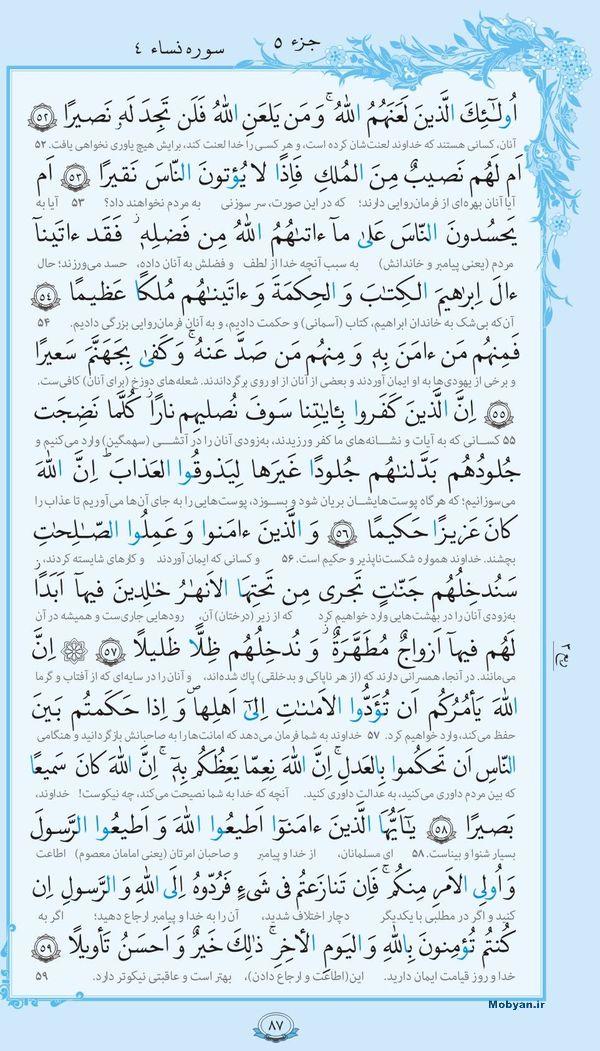 جزء ۵
سوره نساء ۴
اُولٰٓئِكَ الَّذينَ لَعَنَهُمُ اللّٰهُ ۚ وَ مَن يَلعَنِ اللّٰهُ فَلَن تَجِدَ لَه‌و نَصيرًا ۵۲
آنان، کسانی هستند که خداوند لعنت‌شان کرده است، و هر کسی را خدا لعنت کند، برایش هیچ یاوری نخواهی یافت. ۵۲
اَم لَهُم نَصيبٌ مِنَ المُلكِ فَاِذًا لا يُؤتونَ النّاسَ نَقيرًا ۵۳ اَم
آیا آنان بهره‌ای از فرمان‌روایی دارند؛ که در این صورت، سر سوزنی به مردم نخواهند داد؟ ۵۳ آیا به
يَحسُدونَ النّاسَ عَلىٰ مآ ءاتىٰهُمُ اللّٰهُ مِن فَضلِه‌ۦ ۖ فَقَد ءاتَينآ
مردم (یعنی پیامبر و خاندانش) به سبب آنچه خدا از لطف و فضلش به آنان داده، حسد می‌ورزند؛ حال
ءالَ اِبرٰهيمَ الكِتٰبَ وَ الحِكمَةَ وَ ءاتَينٰهُم مُلكًا عَظيمًا ۵۴
آن‌که بی‌شک به خاندان ابراهیم، کتاب (آسمانی) و حکمت دادیم، و به آنان فرمان‌روایی بزرگی دادیم. ۵۴
فَمِنهُم مَن ءامَنَ بِه‌ۦ وَ مِنهُم مَن صَدَّ عَنهُ ۚ وَ كَفىٰ بِجَهَنَّمَ سَعيرًا
و برخی از یهودی‌ها به او ایمان آوردند و بعضی از آنان از او روی برگرداندند. شعله‌های دوزخ (برای آنان) کافی‌ست.
۵۵ اِنَّ الَّذينَ كَفَروا بِـٔايٰتِنا سَوفَ نُصليهِم نارًا ۖ كُلَّما نَضِجَت
۵۵ کسانی که به آیات و نشانه‌های ما کفر ورزیدند، به‌زودی آنان را در آتشی (سهمگین) وارد می‌کنیم و
جُلودُهُم بَدَّلنٰهُم جُلودًا غَيرَها لِيَذوقُوا العَذابَ ۗ اِنَّ اللّٰهَ
می‌سوزانیم؛ که هرگاه پوست‌هایشان بریان شود و بسوزد، پوست‌هایی را به جای آن‌ها می‌آوریم تا عذاب را
كانَ عَزيزًا حَكيمًا ۵۶ وَ الَّذينَ ءامَنوا وَ عَمِلُوا الصّٰلِحٰتِ
بچشند. خداوند همواره شکست‌ناپذیر و حکیم است. ۵۶ و کسانی که ایمان آوردند و کارهای شایسته کردند،
سَنُدخِلُهُم جَنّٰتٍ تَجرى مِن تَحتِهَا الاَنهٰرُ خٰلِدينَ فيهآ اَبَدًا ۖ
به‌زودی آنان را در بهشت‌هایی وارد خواهیم کرد که از زیر (درختان) آن، رودهایی جاری‌ست و همیشه در آن
لَهُم فيهآ اَزواجٌ مُطَهَّرَةٌ ۖ وَ نُدخِلُهُم ظِلًّا ظَليلًا ۵۷ اِنَّ
می‌مانند. در آنجا، همسرانی دارند که (از هر ناپاکی و بدخلقی) پاک شده‌اند، و آنان را در سایه‌ای که از آفتاب و گرما
اللّٰهَ يَأمُرُكُم اَن تُؤَدُّوا الاَمٰنٰتِ اِلىٰٓ اَهلِها ۙ وَ اِذا حَكَمتُم بَينَ
حفظ می‌کند، وارد خواهیم کرد. ۵۷ خداوند به شما فرمان می‌دهد که امانت‌ها را به صاحبانش بازگردانید و هنگامی
النّاسِ اَن تَحكُموا بِالعَدلِ ۚ اِنَّ اللّٰهَ نِعِمّا يَعِظُكُم بِه‌ۦٓ ۗ اِنَّ اللّٰهَ كانَ سَميعًا
که بین مردم داوری می‌کنید، به عدالت داوری کنید. آنچه که خدا به شما نصیحت می‌کند، چه نیکوست! خداوند،
بَصيرًا ۵۸ يٰٓاَيُّهَا الَّذينَ ءامَنوٓا اَطيعُوا اللّٰهَ وَ اَطيعُوا الرَّسولَ
بسیار شنوا و بیناست. ۵۸ ای مسلمانان، از خدا و پیامبر و صاحبان امرتان (یعنی امامان معصوم) اطاعت
وَ اُولِى الاَمرِ مِنكُم ۖ فَاِن تَنازَعتُم فى شَىءٍ فَرُدّوهُ اِلَى اللّٰهِ وَ الرَّسولِ اِن
کنید و اگر در مطلبی با یکدیگر دچار اختلاف شدید، آن را به خدا و پیامبر ارجاع دهید؛ اگر به
كُنتُم تُؤمِنونَ بِاللّٰهِ وَ اليَومِ الأخِرِ ۚ ذٰلِكَ خَيرٌ وَ اَحسَنُ تَأويلًا ۵۹
خدا و روز قیامت ایمان دارید. این (اطاعت و ارجاع دادن)، بهتر است و عاقبتی نیکوتر دارد. ۵۹
۸۷
Mobyan.ir